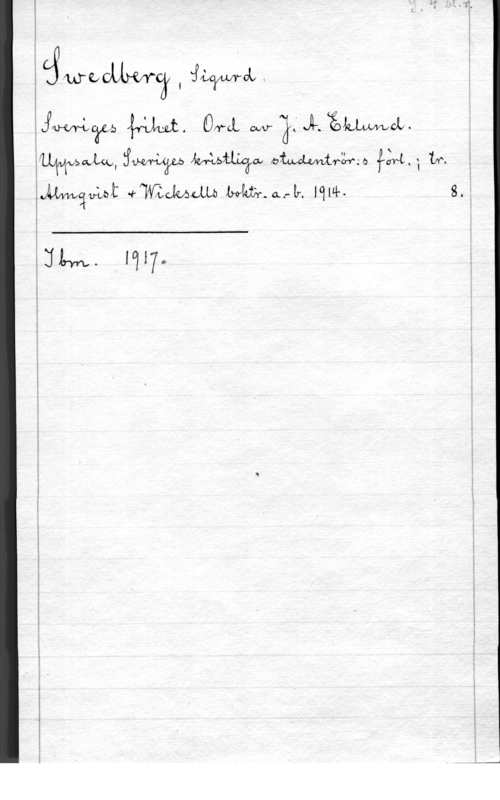 Swedberg, Sigurd.
Sveriges frihet. Ord av J. A. Eklund.
Uppsala, Sveriges kristliga studentrör:s förl.; tr.
Almqvist + Wicksells boktr. a.-b. 1914. 8.
Ibm. 1917.